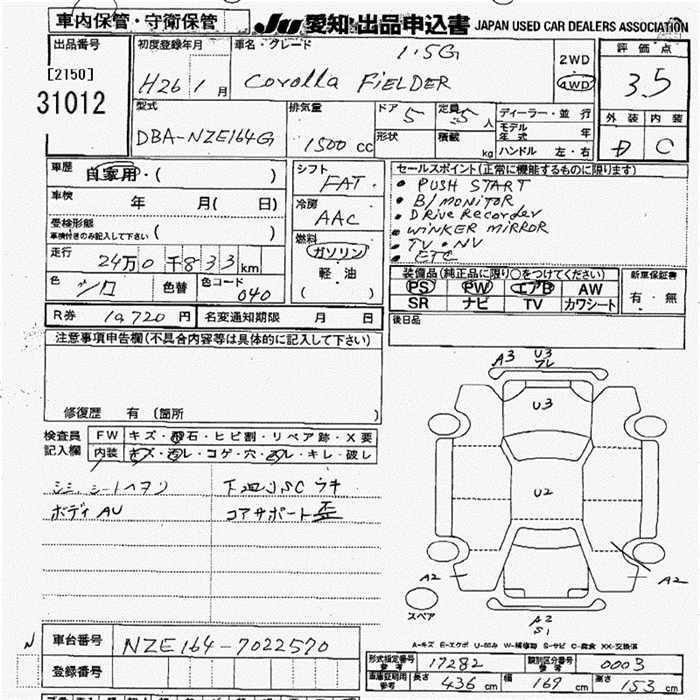 車内保管・守衛保管
JU 愛知・出品申込書 JAPAN USED CAR DEALERS ASSOCIATION
出品番号
[2150]
31012
初度登録年月
H26 1 月
車名・グレード
1.5G
Corolla FIELDER
2WD
4WD
評価点
3.5
外装 内装
C
型式
DBA-NZE164G
排気量
1500 cc
ドア 5
定員 5 人
形状
積載 kg
ディーラー・並行
モデル年式 年
ハンドル 左・右
車歴
自家用・( )
車検
年 月( 日)
受検形態
車検付きのみ記入して下さい ( )
走行
24万0千833km
色
シロ
色替
色コード
040
シフト
FAT
冷房
AAC
燃料
ガソリン
軽・油
( )
セールスポイント(正常に機能するものに限ります)
• PUSH START
• B/MONITOR
• Drive Recorder
• WINKER MIRROR
• TV・NV
• ETC
装備品(純正品に限り○をつけてください)
PS PW エアB AW
SR ナビ TV カワシート
新車保証書
有・無
R券 10,720 円
名変通知期限 月 日
後日品
注意事項申告欄(不具合内容等は具体的に記入して下さい)
修復歴 有 (箇所 )
検査員記入欄
FW キズ・飛石・ヒビ割・リペア跡・X要
内装 キズ・汚レ・コゲ・穴・ヌレ・キレ・破レ
シミ、シートヘタリ
ボディAU
下回りSC ウチ
コアサポート歪
A3 U3
フレ
U3
U2
A2
A2
A2
S1
スペア
A-キズ E-エクボ U-凹み W-補修跡 S-サビ C-腐食 XX-交換済
N
車台番号 NZE164-7022570
登録番号
形式指定番号 参考 17282
類別区分番号 参考 0003
車庫証明用 参考 長さ 436 cm 幅 169 cm 高さ 153 cm